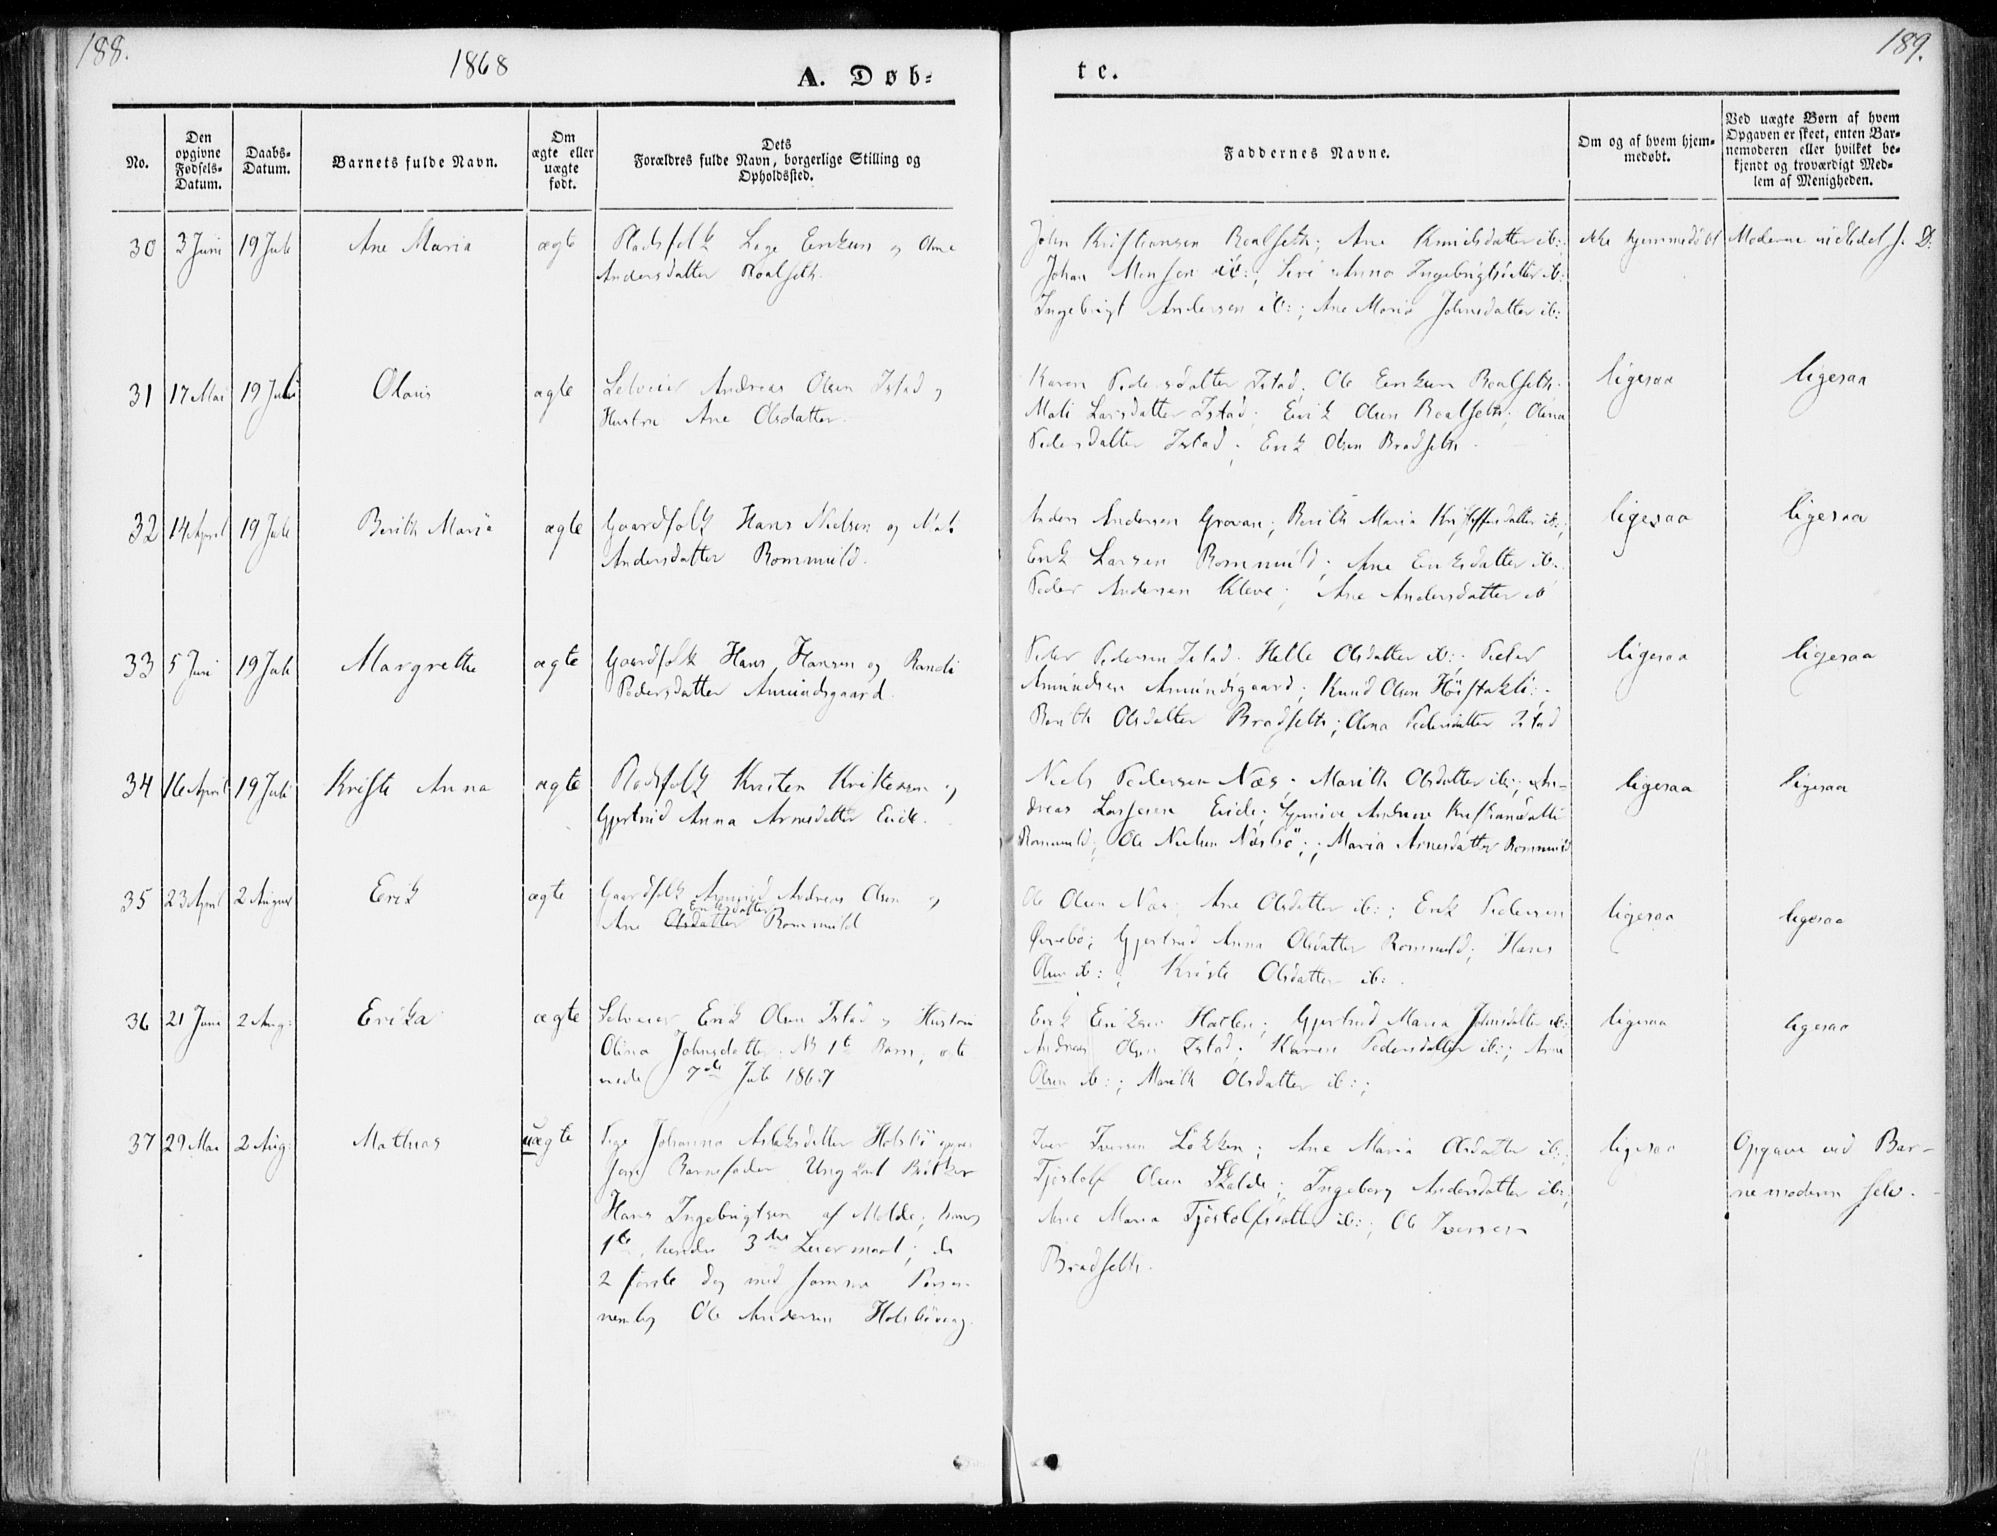 188.
1868
A. Døb-
te.
189.
No.
Den opgivne Fødsels-Datum.
Daabs-Datum.
Barnets fulde Navn.
Om ægte eller uægte født.
Dets
Forældres fulde Navn, borgerlige Stilling og
Opholdssted.
Faddernes Navne.
Om og af hvem hjem-
medøbt.
Ved uægte Børn af hvem
Opgaven er skeet, enten Bar-
nemoderen eller hvilket be-
kjendt og troværdigt Med-
lem af Menigheden.
30 3 Juni 19 Juli Ane Maria ægte Pladsfolk Eriksen og
Andersdatter Roalseth.
John Kristiansen Roalseth; Ane Knudsdatter ib:
Johan Monsen ib:; Siri Anna Ingebrigtsdatter ib:
Ingebrigt Andersen ib:; Ane Maria Johnsdatter ib:
ikke hjemmedøbt
31 17 Mai 19 Juli Olaus ægte Selveier Andreas Olsen Istad og
Hustru Ane Olsdatter.
Karen Pedersdatter Istad; Ole Eriksen Roalseth.
Mali Larsdatter Istad; Erik Olsen Roalseth; Olina
Pedersdatter Istad; Erik Olsen Bradseth.
ligesaa
ligesaa
32 14 April 19 Juli Berith Maria ægte Gaardfolk Hans Nielsen og
Andersdatter Rommuld.
Anders Andersen Grovan; Berith Maria Kristoffersdatter ib:;
Erik Larsen Rommuld; Ane Eriksdatter ib:
Peder Andersen Kleve; Ane Andersdatter ib
ligesaa
ligesaa
33 5 Juni 19 Juli Margrethe ægte Gaardfolk Hans Hansen og Randi
Pedersdatter Amundsgaard.
Peder Pedersen Istad. Helle Olsdatter ib:; Peder
Amundsen Amundsgaard; Knud Olsen
Berith Olsdatter Bradseth; Olina Pedersdatter Istad
ligesaa
ligesaa
34 16 April 19 Juli Kriste Anna ægte Pladsfolk Kristen Kristensen og
Gjertrud Anna Arnesdatter Eide.
Niels Pedersen Næs; Marith Olsdatter ib:; An-
dreas Lassesen Eide; Andrea Kristiansdatter
Rommuld; Ole Nielsen Næsbø; Maria Arnesdatter Rommuld
ligesaa
ligesaa
35 23 April 2 August Erik ægte Gaardfolk Andreas Olsen og
Eriksdatter
Ane Olsdatter Rommuld
Ole Olsen Næs; Ane Olsdatter ib:; Erik Pedersen
Øverbø; Gjertrud Anna Olsdatter Rommuld; Hans
Olsen ib:; Kriste Olsdatter ib:.
ligesaa
ligesaa
36 21 Juni 2 Aug: Erika ægte Selveier Erik Olsen Istad og Hustru
Olina Johnsdatter. NB 1te Barn, ægte
viede 7de Juli 1867
Erik Eriksen Hatlen; Gjertrud Maria Johnsdatter ib:
Andreas Olsen Istad; Karen Pedersdatter ib:; Arne
Olsen ib:; Marith Olsdatter ib:;
ligesaa
ligesaa
37 29 Mai 2 Aug: Mathias uægte Pige Johanna Aslaksdatter Holsbø
Barnefader Ungkarl
Hans Ingebrigtsen af Molde; hans
1te, hendes 3die Leiermaal; de
2 første dog med samme Person
nemlig Ole Andersen
Iver Iversen Løkken; Ane Maria Olsdatter ib:;
Tjøstolf Olsen Skalde; Ingeborg Andersdatter ib:;
Ane Maria Tjøstolfsdatter ib:; Ole Iversen
Bradseth.
ligesaa
Opgave ved Bar-
nemoderen selv.